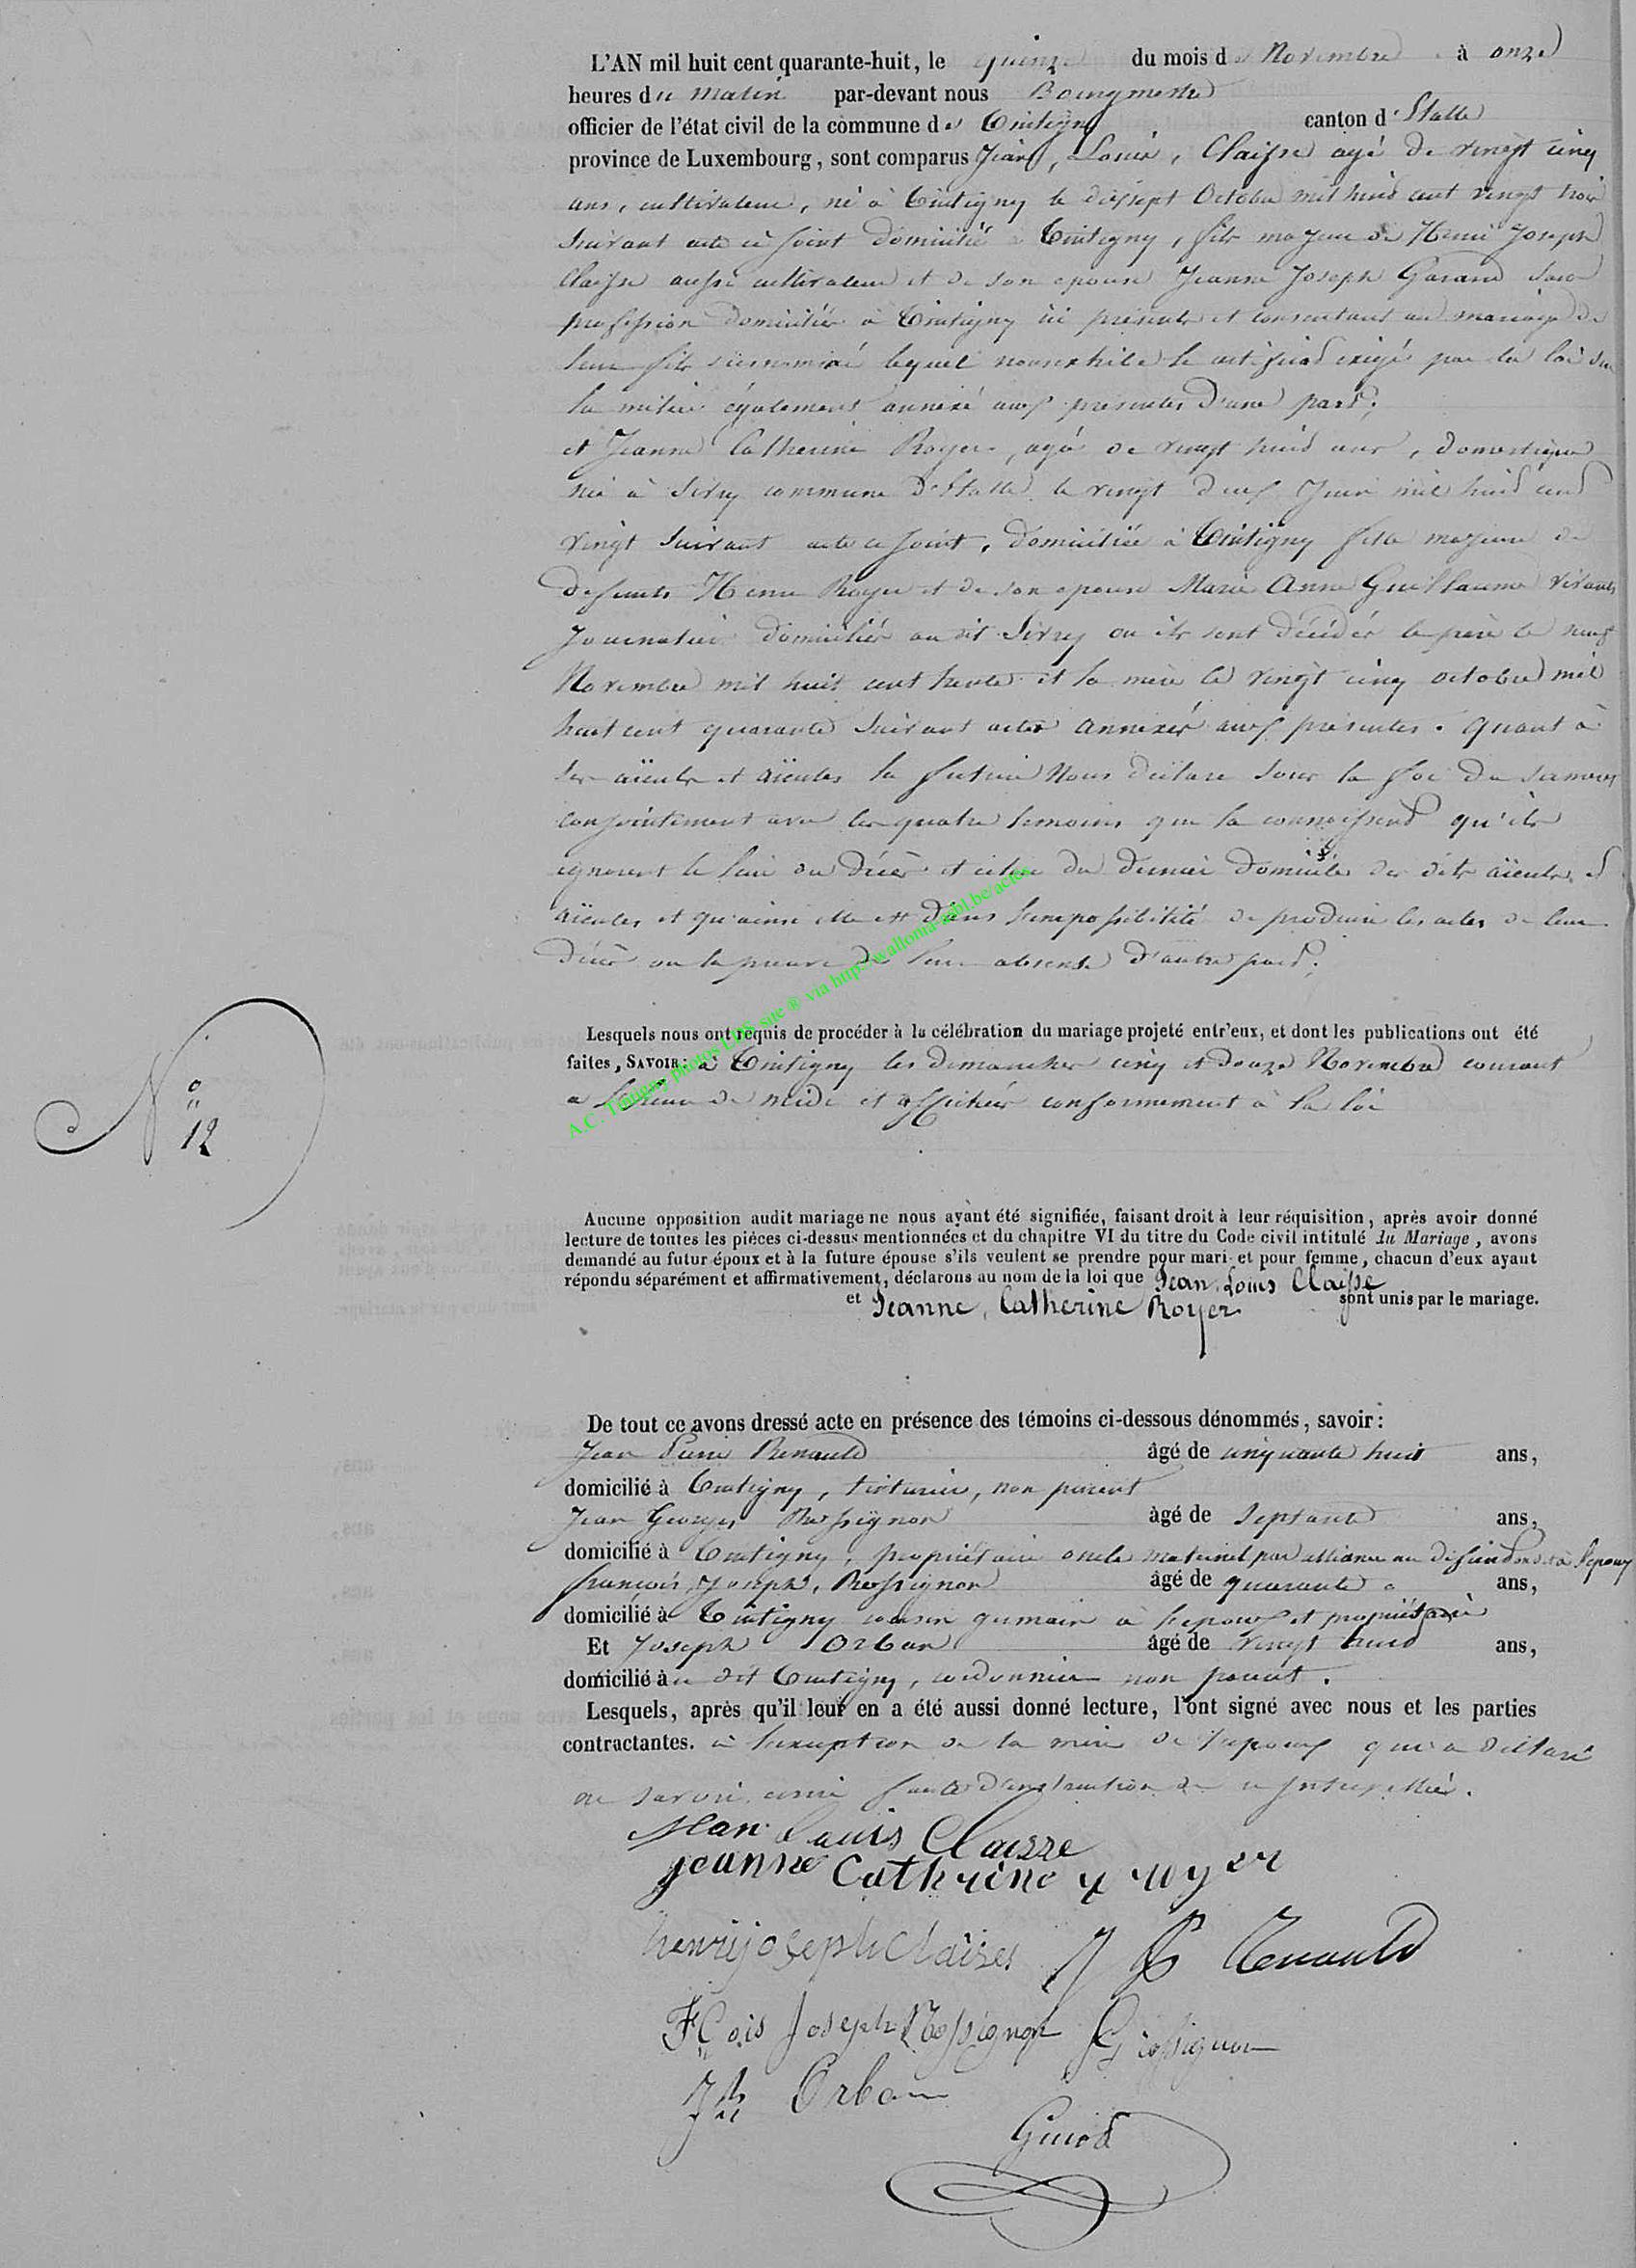 L'AN mil huit cent quarante-huit, le quinze du mois de Novembre à onze
heures du matin par-devant nous Bourgmestre
officier de l'état civil de la commune de Tintigny canton d'Etalle
province de Luxembourg, sont comparus Jean, Louis, Claisse agé de vingt cinq
ans, cultivateur, né à Tintigny le dixsept Octobre mil huit cent vingt trois
suivant acte ci joint domicilié à Tintigny, fils majeur de Henri Joseph
Claisse aussi cultivateur et de son epouse Jeanne Joseph sans
profession domiciliés à Tintigny ici présents et consentant au mariage de
leur fils susnommé lequel nous exhibe le certificat exigé par la loi sur
la milice également annexé aux présentes d'une part;
et Jeanne Catherine Royer, agée de vingt huit ans, domestique
née à Sivry commune d'Etalle le vingt deux Juin mil huit cent
vingt suivant acte ci joint, domiciliée à Tintigny fille majeure de
defunts Henri Royer et de son epouse Marie Anne Guillaume vivants
Journaliers domiciliés au dit Sivry ou ils sont décédés le père le neuf
Novembre mil huit cent trente et la mère le vingt cinq octobre mil
huit cent quarante suivant actes annexés aux présentes. Quant à
ses aïeuls et aïeules la future Nous déclare sous la foi du serment
conjointement avec les quatre temoins que la connoissent qu'ils
ignorent le lieu du décès et celui du dernier domicile des dits aïeuls et
aïeules et qu'ainsi elle est dans l'impossibilité de produire les actes de leur
décès ou la preuve de leur absense d'autre part;
Lesquels nous ont requis de procéder à la célébration du mariage projeté entr'eux, et dont les publications ont été
faites, SAVOIR: à Tintigny les dimanches cinq et douze Novembre courant
a l'heure de midi et affichées conformement à la loi
A.C. Tintigny photos LDS site ® via http://wallonia-asbl.be/actes
No
12
Aucune opposition audit mariage ne nous ayant été signifiée, faisant droit à leur réquisition, après avoir donné
lecture de toutes les pièces ci-dessus mentionnées et du chapitre VI du titre du Code civil intitulé du Mariage, avons
demandé au futur époux et à la future épouse s'ils veulent se prendre pour mari et pour femme, chacun d'eux ayant
répondu séparément et affirmativement, déclarons au nom de la loi que Jean Louis Claisse
et Jeanne, Catherine Royer sont unis par le mariage.
De tout ce avons dressé acte en présence des témoins ci-dessous dénommés, savoir:
Jean Pierre Renauld âgé de cinquante huit ans,
domicilié à Tintigny, tinturier, non parent
Jean Georges Rossignon âgé de septante ans,
domicilié à Tintigny, propriétaire oncle maternel par alliance à l'epoux
françois, Joseph, Rossignon âgé de quarante ans,
domicilié à Tintigny cousin germain à l'epoux et propriétaire
Et Joseph Orban âgé de vingt huit ans,
domicilié à u dit Tintigny, cordonnier non parent.
Lesquels, après qu'il leur en a été aussi donné lecture, l'ont signé avec nous et les parties
contractantes. à l'exception de la mère de l'epoux qui a déclaré
ne savoir faute d'instruction de ce interpellée.
Jean Louis Claisse
jeanne Cathrine royer
henrijosephclaises J P Renauld
Fçois Joseph Rossignon G Rossignon
Jh Orban
Guiod